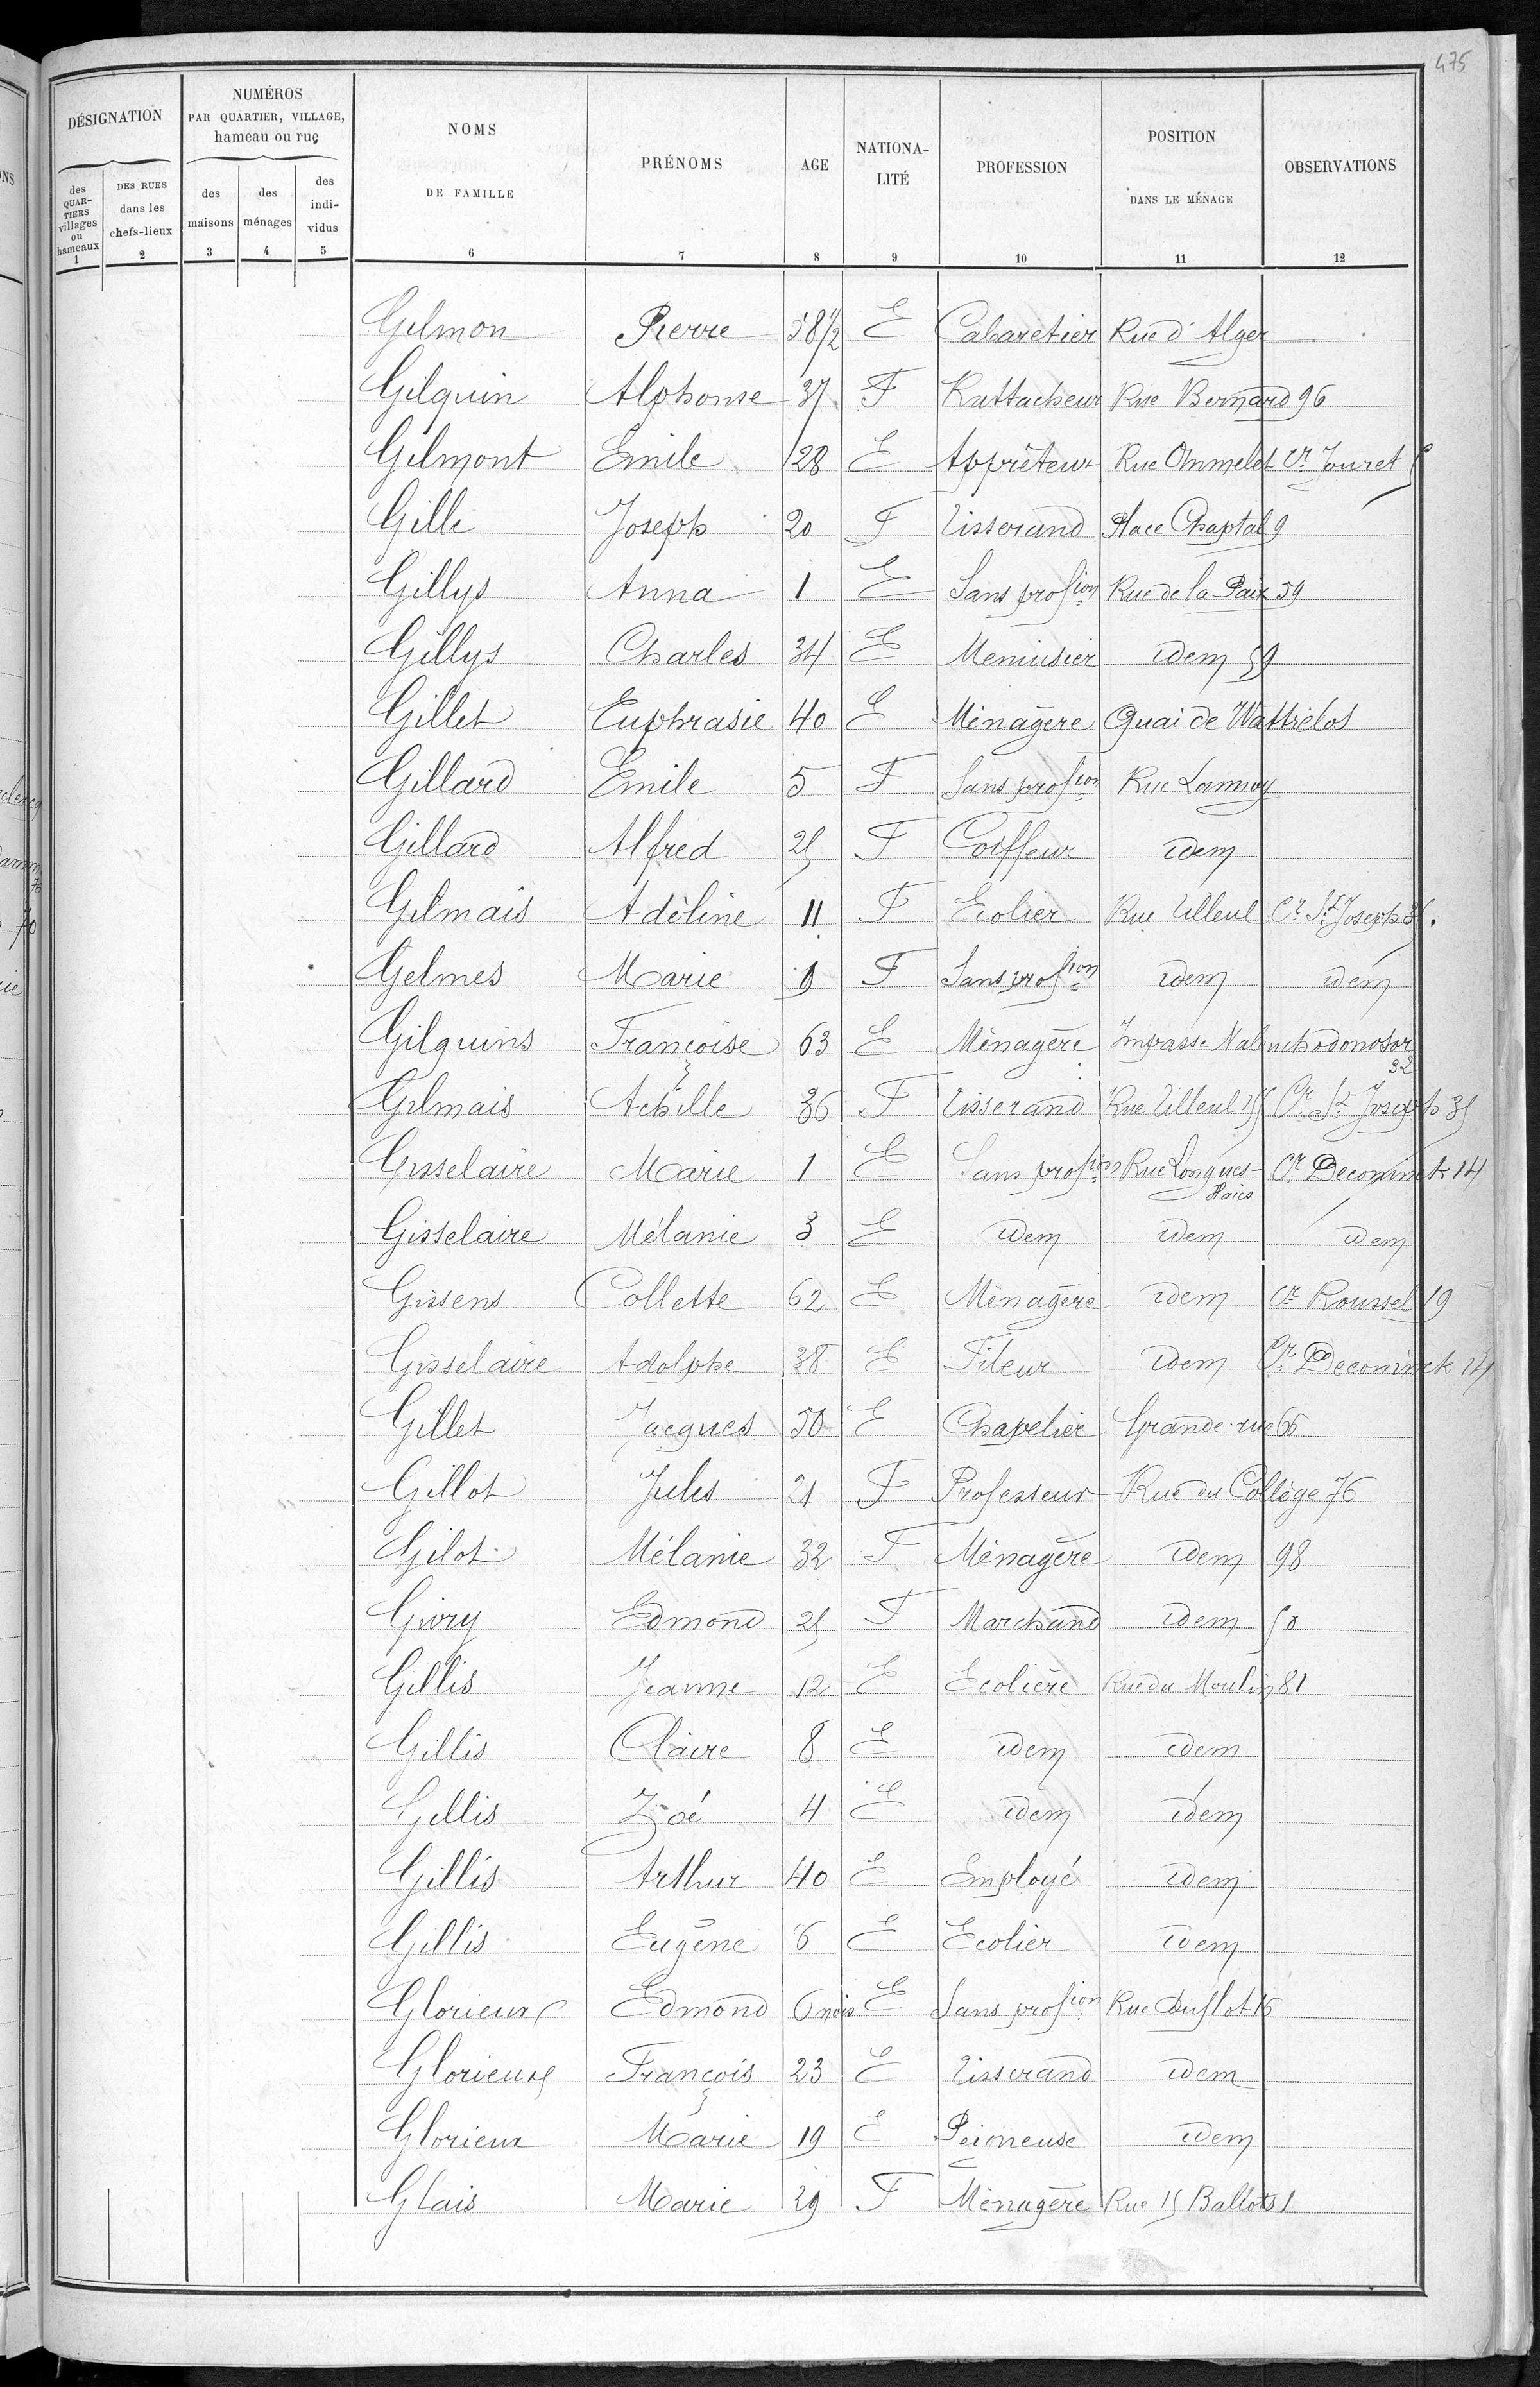 475
DÉSIGNATION
NUMÉROS PAR QUARTIER, VILLAGE, hameau ou rue
NOMS DE FAMILLE
PRÉNOMS
AGE
NATIONA-LITÉ
PROFESSION
POSITION DANS LE MÉNAGE
OBSERVATIONS
des QUAR-TIERS villages ou hameaux
DES RUES dans les chefs-lieux
des maisons
des ménages
des indi-vidus
1 2 3 4 5 6 7 8 9 10 11 12
Gilmon Pierre 58 1/2 E Cabaretier Rue d'Alger
Gilquin Alphonse 37 F Rattacheur Rue Bernard 96
Gilmont Emile 28 E Apprêteur Rue Ommelet Cr Jouret
Gille Joseph 20 F Tisserand Place Chaptal 9
Gillys Anna 1 E Sans profion Rue de la Paix 59
Gillys Charles 34 E Menuisier idem 59
Gillet Euphrasie 40 E Ménagère Quai de Wattrelos
Gillard Emile 5 F Sans profion Rue Lannoy
Gillard Alfred 25 F Coiffeur idem
Gilmais Adéline 11 F Ecolier Rue Tilleul Cr St Joseph 35.
Gelmes Marie 9 F Sans profion idem idem
Gilquins Françoise 63 E Ménagère Impasse Nabuchodonosor 32
Gilmais Achille 36 F Tisserand Rue Tilleul 155 Cr St Joseph 35
Gisselaire Marie 1 E Sans profion Rue Longues-Haies Cr Deconinck 14
Gisselaire Mélanie 3 E idem idem idem
Gissens Collette 62 E Ménagère idem Cr Roussel 19
Gisselaire Adolphe 38 E Fileur idem Cr Deconinck 14
Gillet Jacques 50 E Chapelier Grande-rue 66
Gillot Jules 21 F Professeur Rue du Collège 76
Gilot Mélanie 32 F Ménagère idem 98
Givry Edmond 25 F Marchand idem 50
Gillis Jeanne 12 E Ecolière Rue du Moulin 81
Gillis Claire 8 E idem idem
Gillis Zoé 4 E idem idem
Gillis Arthur 40 E Employé idem
Gillis Eugène 6 E Ecolier idem
Glorieux Edmond 6 mois E Sans profion Rue Duflot 16
Glorieux François 23 E Tisserand idem
Glorieux Marie 19 E Peigneuse idem
Glais Marie 29 F Ménagère Rue 15 Ballots 1